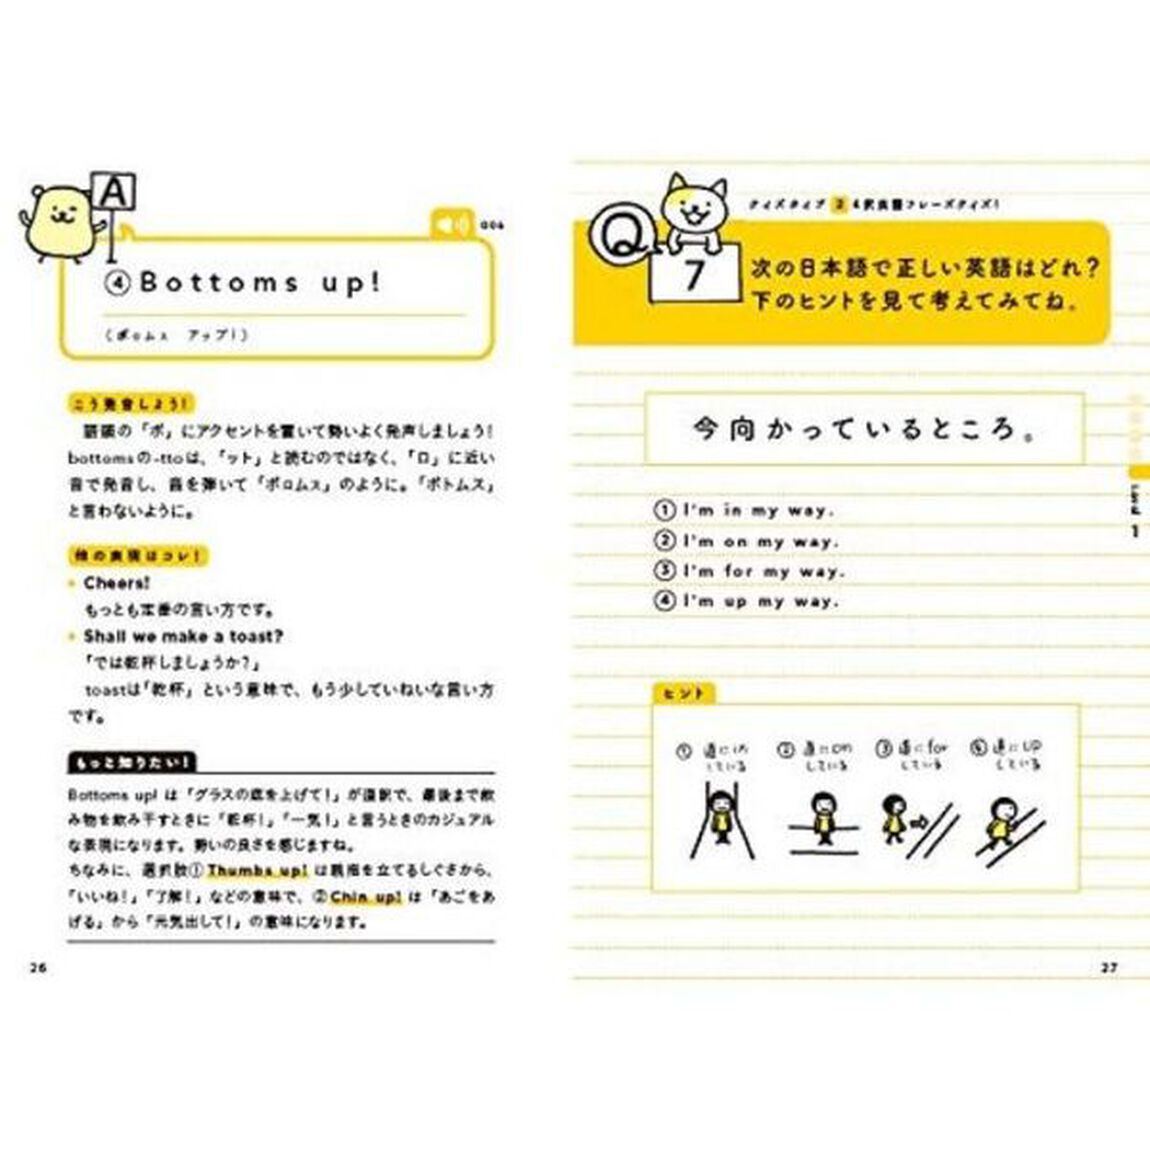 A
006
④Bottoms up!
(ボロムス アップ!)
こう発音しよう!
語頭の「ボ」にアクセントを置いて勢いよく発声しましょう!
bottomsの-ttoは、「ット」と読むのではなく、「ロ」に近い
音で発音し、音を弾いて「ボロムス」のように。「ボトムス」
と言わないように。
他の表現はコレ!
Cheers!
もっとも定番の言い方です。
Shall we make a toast?
「では乾杯しましょうか?」
toastは「乾杯」という意味で、もう少していねいな言い方
です。
もっと知りたい!
Bottoms up! は「グラスの底を上げて!」が直訳で、最後まで飲
み物を飲み干すときに「乾杯!」「一気!」と言うときのカジュアル
な表現になります。勢いの良さを感じますね。
ちなみに、選択肢① Thumbs up! は親指を立てるしぐさから、
「いいね!」「了解!」などの意味で、②Chin up! は「あごをあ
げる」から「元気出して!」の意味になります。
26
クイズタイプ 2 4択英語フレーズクイズ!
Q
7
次の日本語で正しい英語はどれ?
下のヒントを見て考えてみてね。
今向かっているところ。
① I'm in my way.
② I'm on my way.
③ I'm for my way.
④ I'm up my way.
ヒント
① 道にin
している
② 道にon
している
③ 道にfor
している
④ 道にup
している
Level 1
27